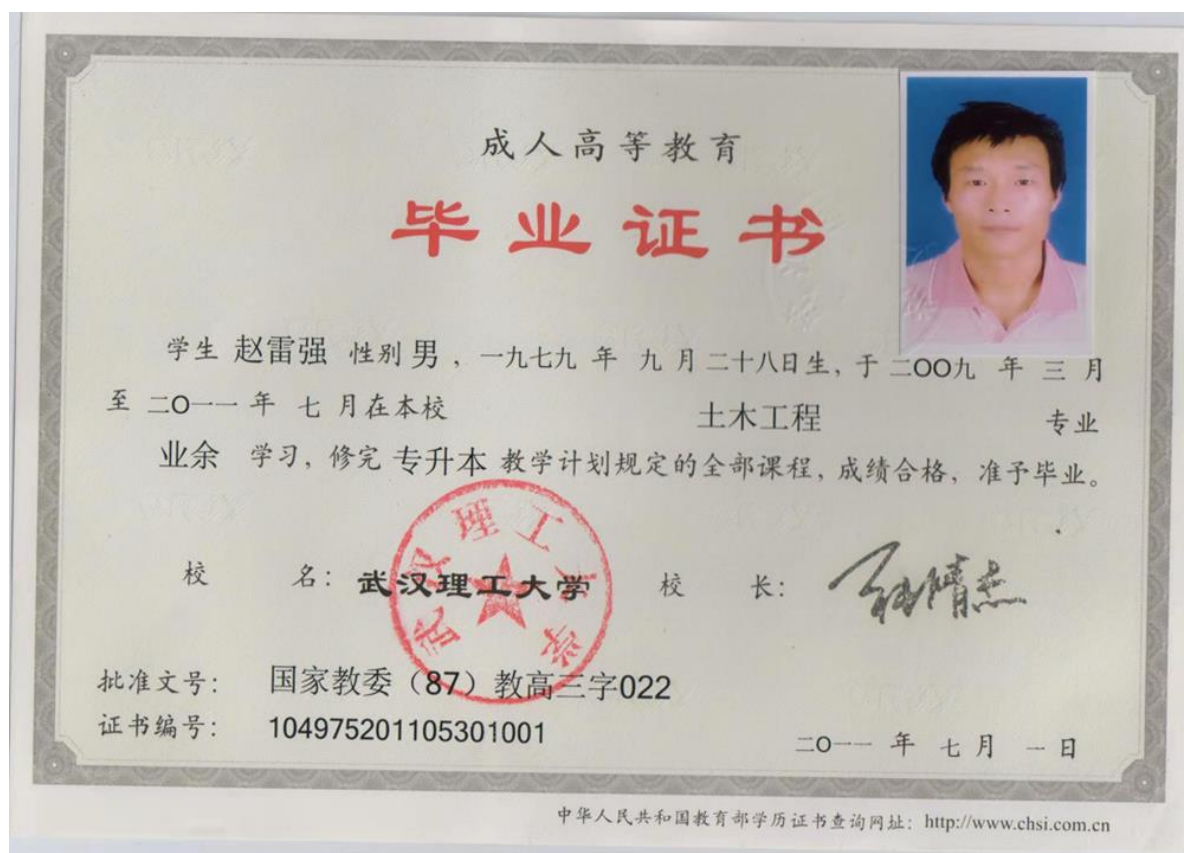 成人高等教育
毕业证书
学生 赵雷强 性别 男，一九七九 年 九 月 二十八日生，于 二OO九 年 三 月
至 二O一一 年 七 月在本校 土木工程 专业
业余 学习，修完 专升本 教学计划规定的全部课程，成绩合格，准予毕业。
校 名：武汉理工大学 校 长：
武汉理工大学
批准文号： 国家教委（87）教高三字022
证书编号： 104975201105301001
二O一一 年 七 月 一 日
中华人民共和国教育部学历证书查询网址：http://www.chsi.com.cn